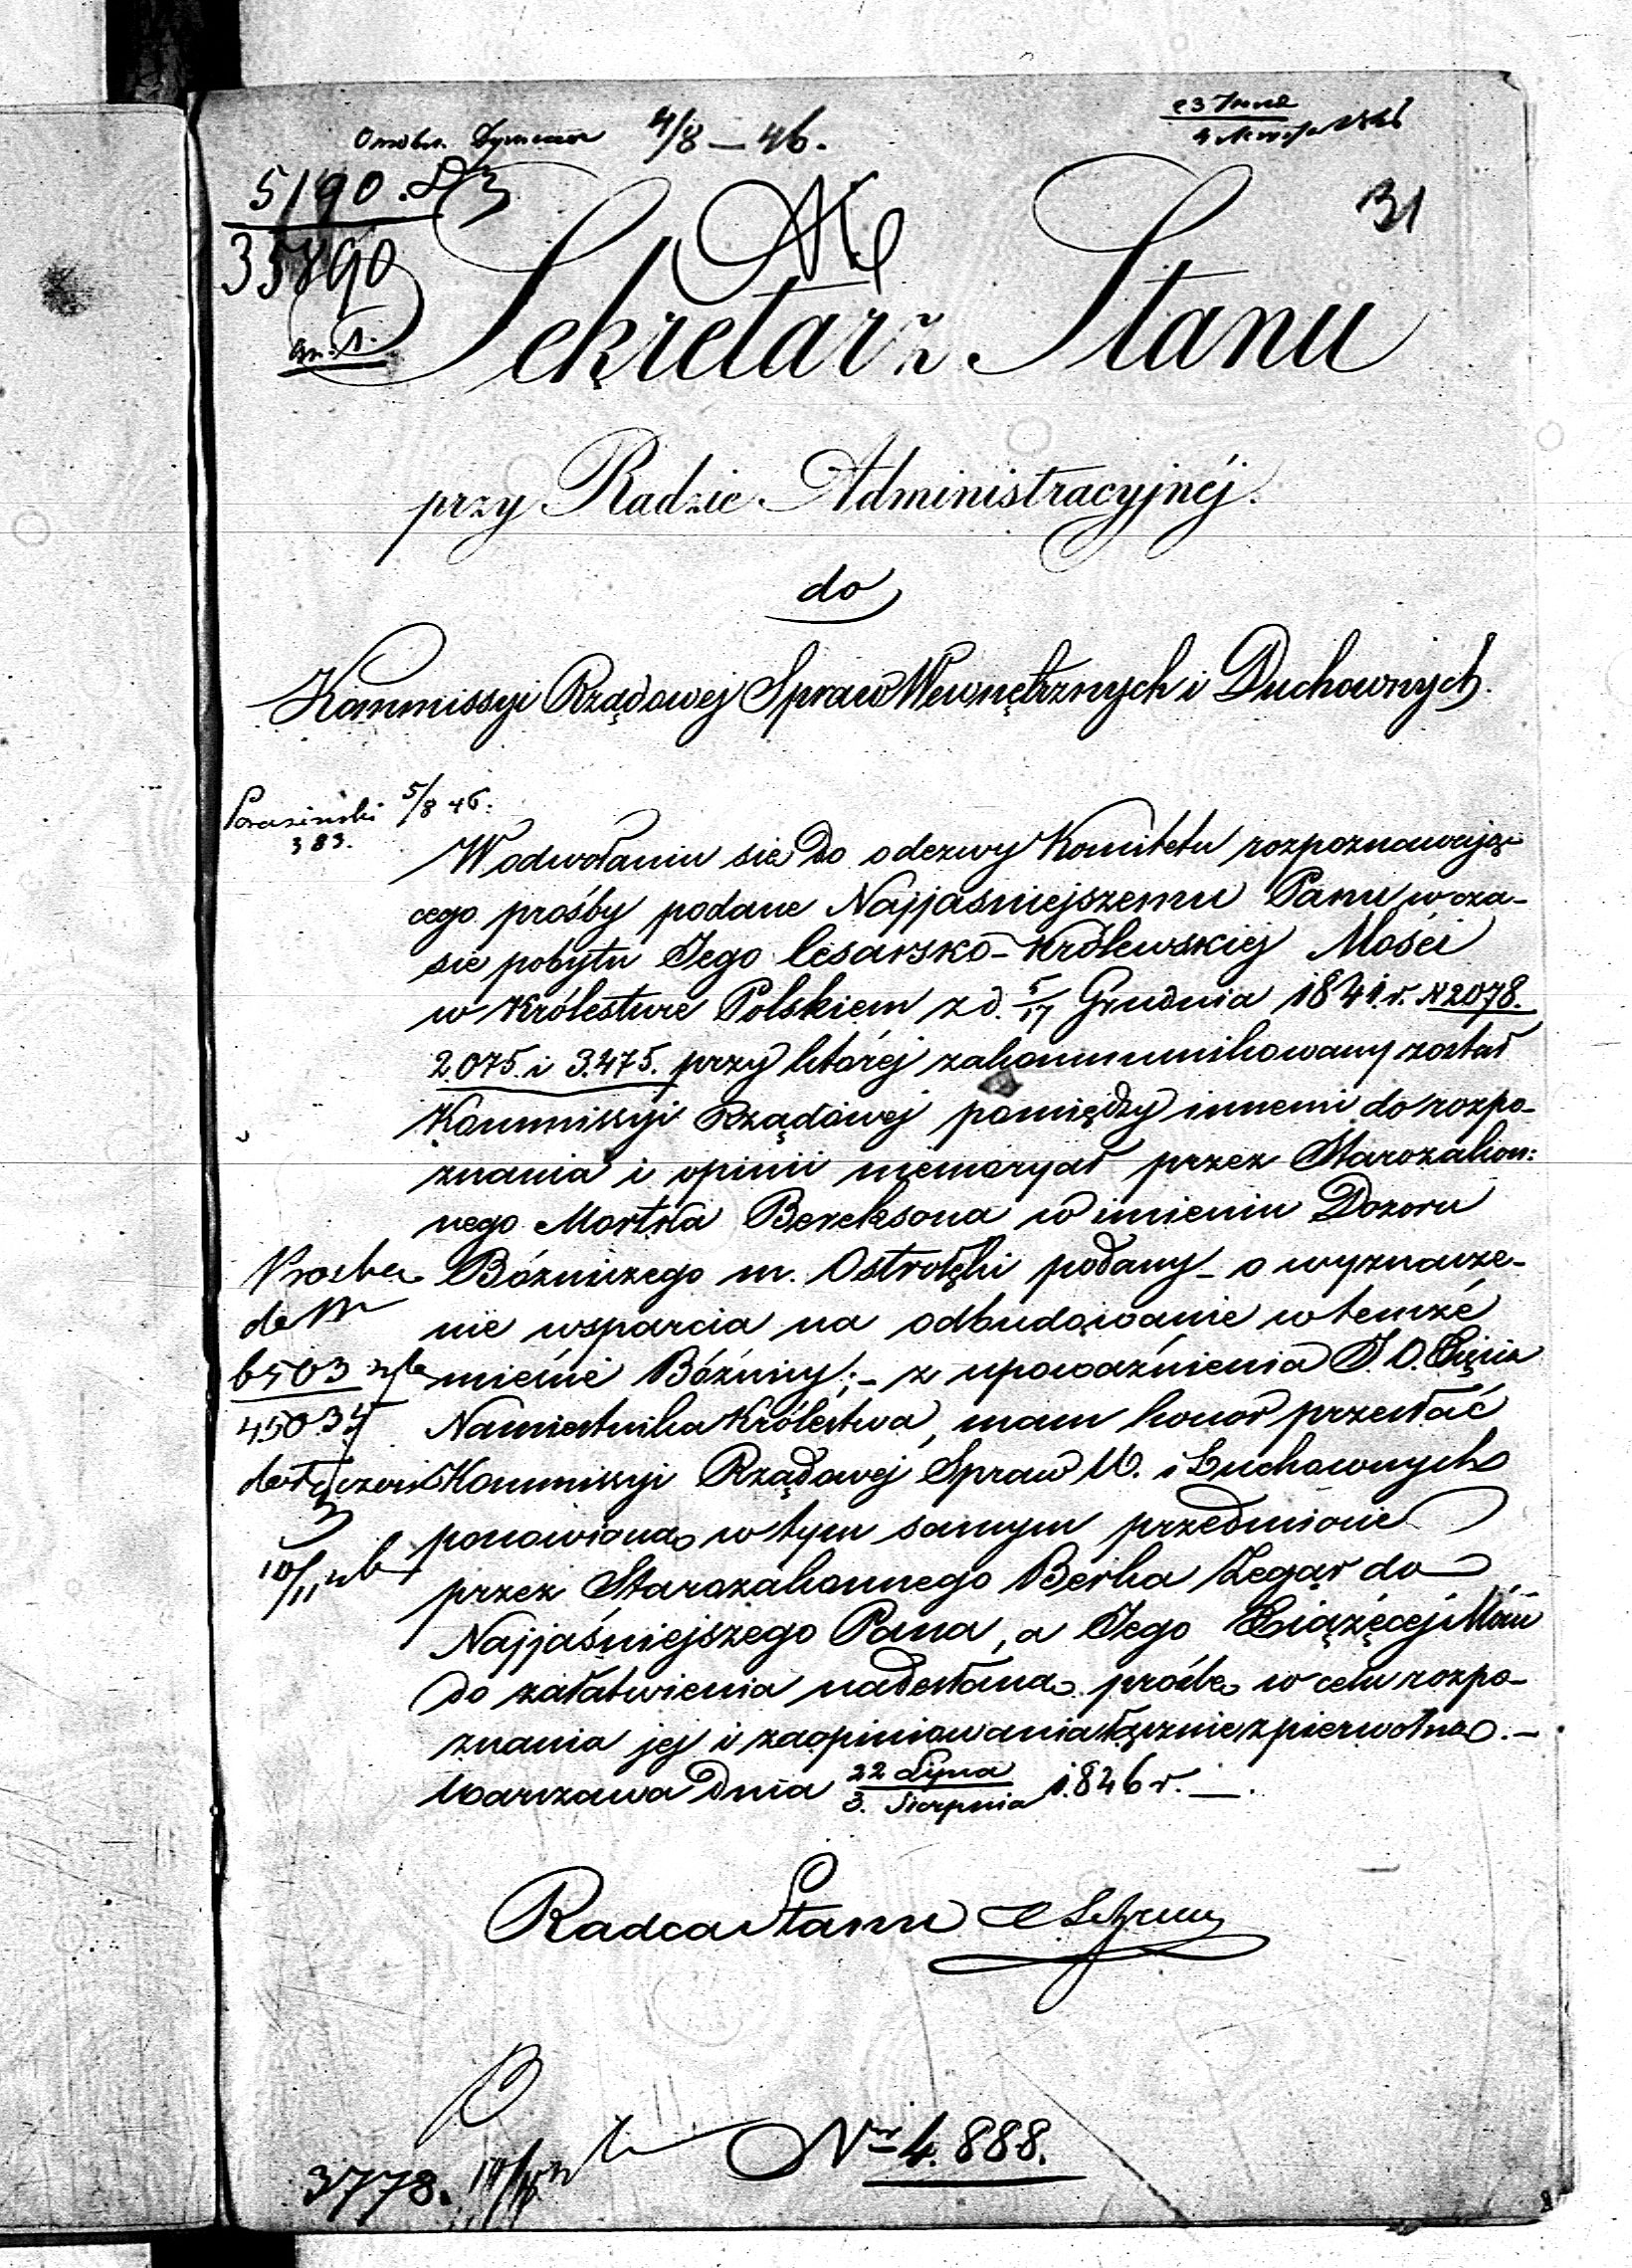 4/8 – 46.
5190.
35890
31
Sekretarz Stanu
przy Radzie Administracyjnéj.
do
Kommissyi Rządowej Spraw Wewnętrznych i Duchownych.
5/8 46.
383.
W odwołaniu się do odezwy Komitetu rozpoznawają-
cego prośby podane Najjaśniejszemu Panu w cza-
sie pobytu Jego Cesarsko-Królewskiej Mości
w Królestwie Polskiem z d. 5/17 Grudnia 1841 r. N 2078.
2.075. i 3.475. przy której zakommunikowany został
Kommissyi Rządowej pomiędzy innemi do rozpo-
znania i opinii memoryał przez Starozakon:
nego Mortka Berksona w imieniu Dozoru
Bóżniczego m. Ostrołęki podany – o wyznacze-
nie wsparcia na odbudowanie w temże
mieście Bóżnicy; – z upoważnienia J. O. Xięcia
Namiestnika Królestwa, mam honor przesłać
Kommissyi Rządowej Spraw W. i Duchownych
ponowioną w tym samym przedmiocie
przez Starozakonnego Berka Zegar do
Najjaśniejszego Pana, a Jego Xiążęcej Mości
do załatwienia nadesłaną prośbę w celu rozpo-
znania jej i zaopiniowania łącznie z pierwotną. –
Warszawa dnia 22 Lipca / 3. Sierpnia 1.846 r. –.
Prośba
6503
4503
10/11
Radca Stanu
Nr 4.888.
3778.